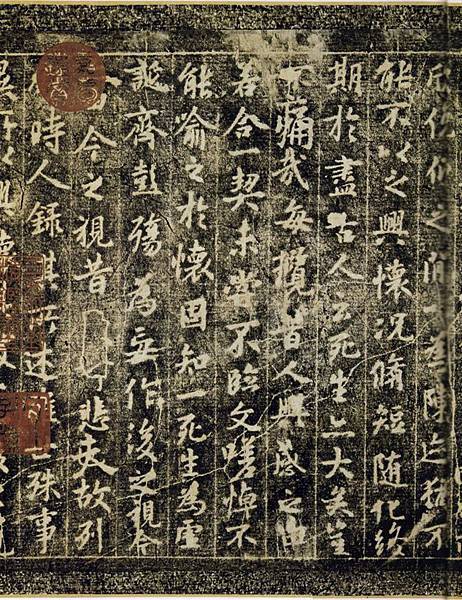 欣俛仰之間以為陳迹猶不
能不以之興懷況脩短隨化終
期於盡古人云死生亦大矣豈
不痛哉每攬昔人興感之由
若合一契未嘗不臨文嗟悼不
能喻之於懷固知一死生為虛
誕齊彭殤為妄作後之視今
今之視昔悲夫故列
時人錄其所述殊事
異所以興懷其致